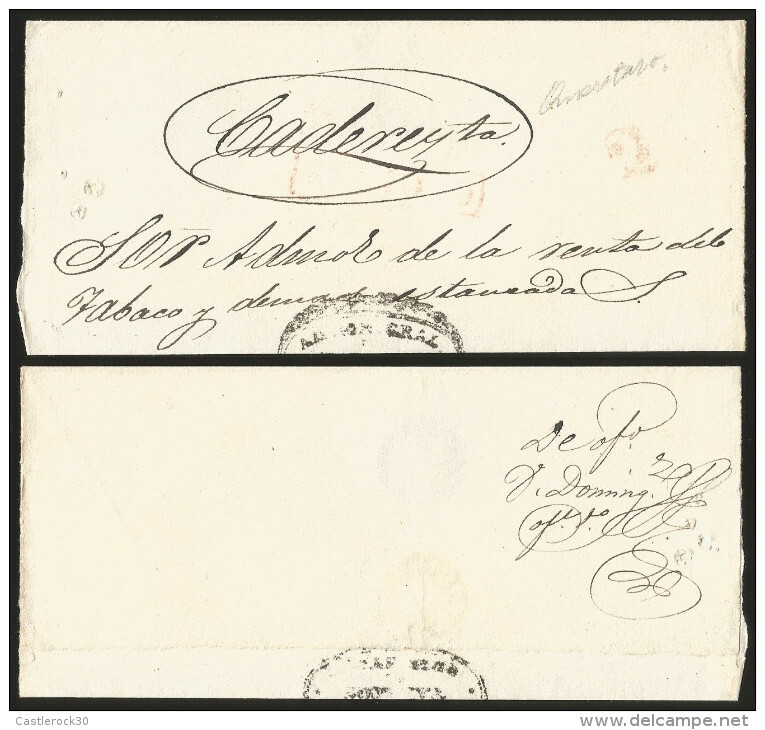 Queretaro.
Cadereyta.
2
Sor Admor de la renta del
Tabaco y demas estancadas
GRAL
De ofo.
D. Doming.
Castlerock30
delcampe.net